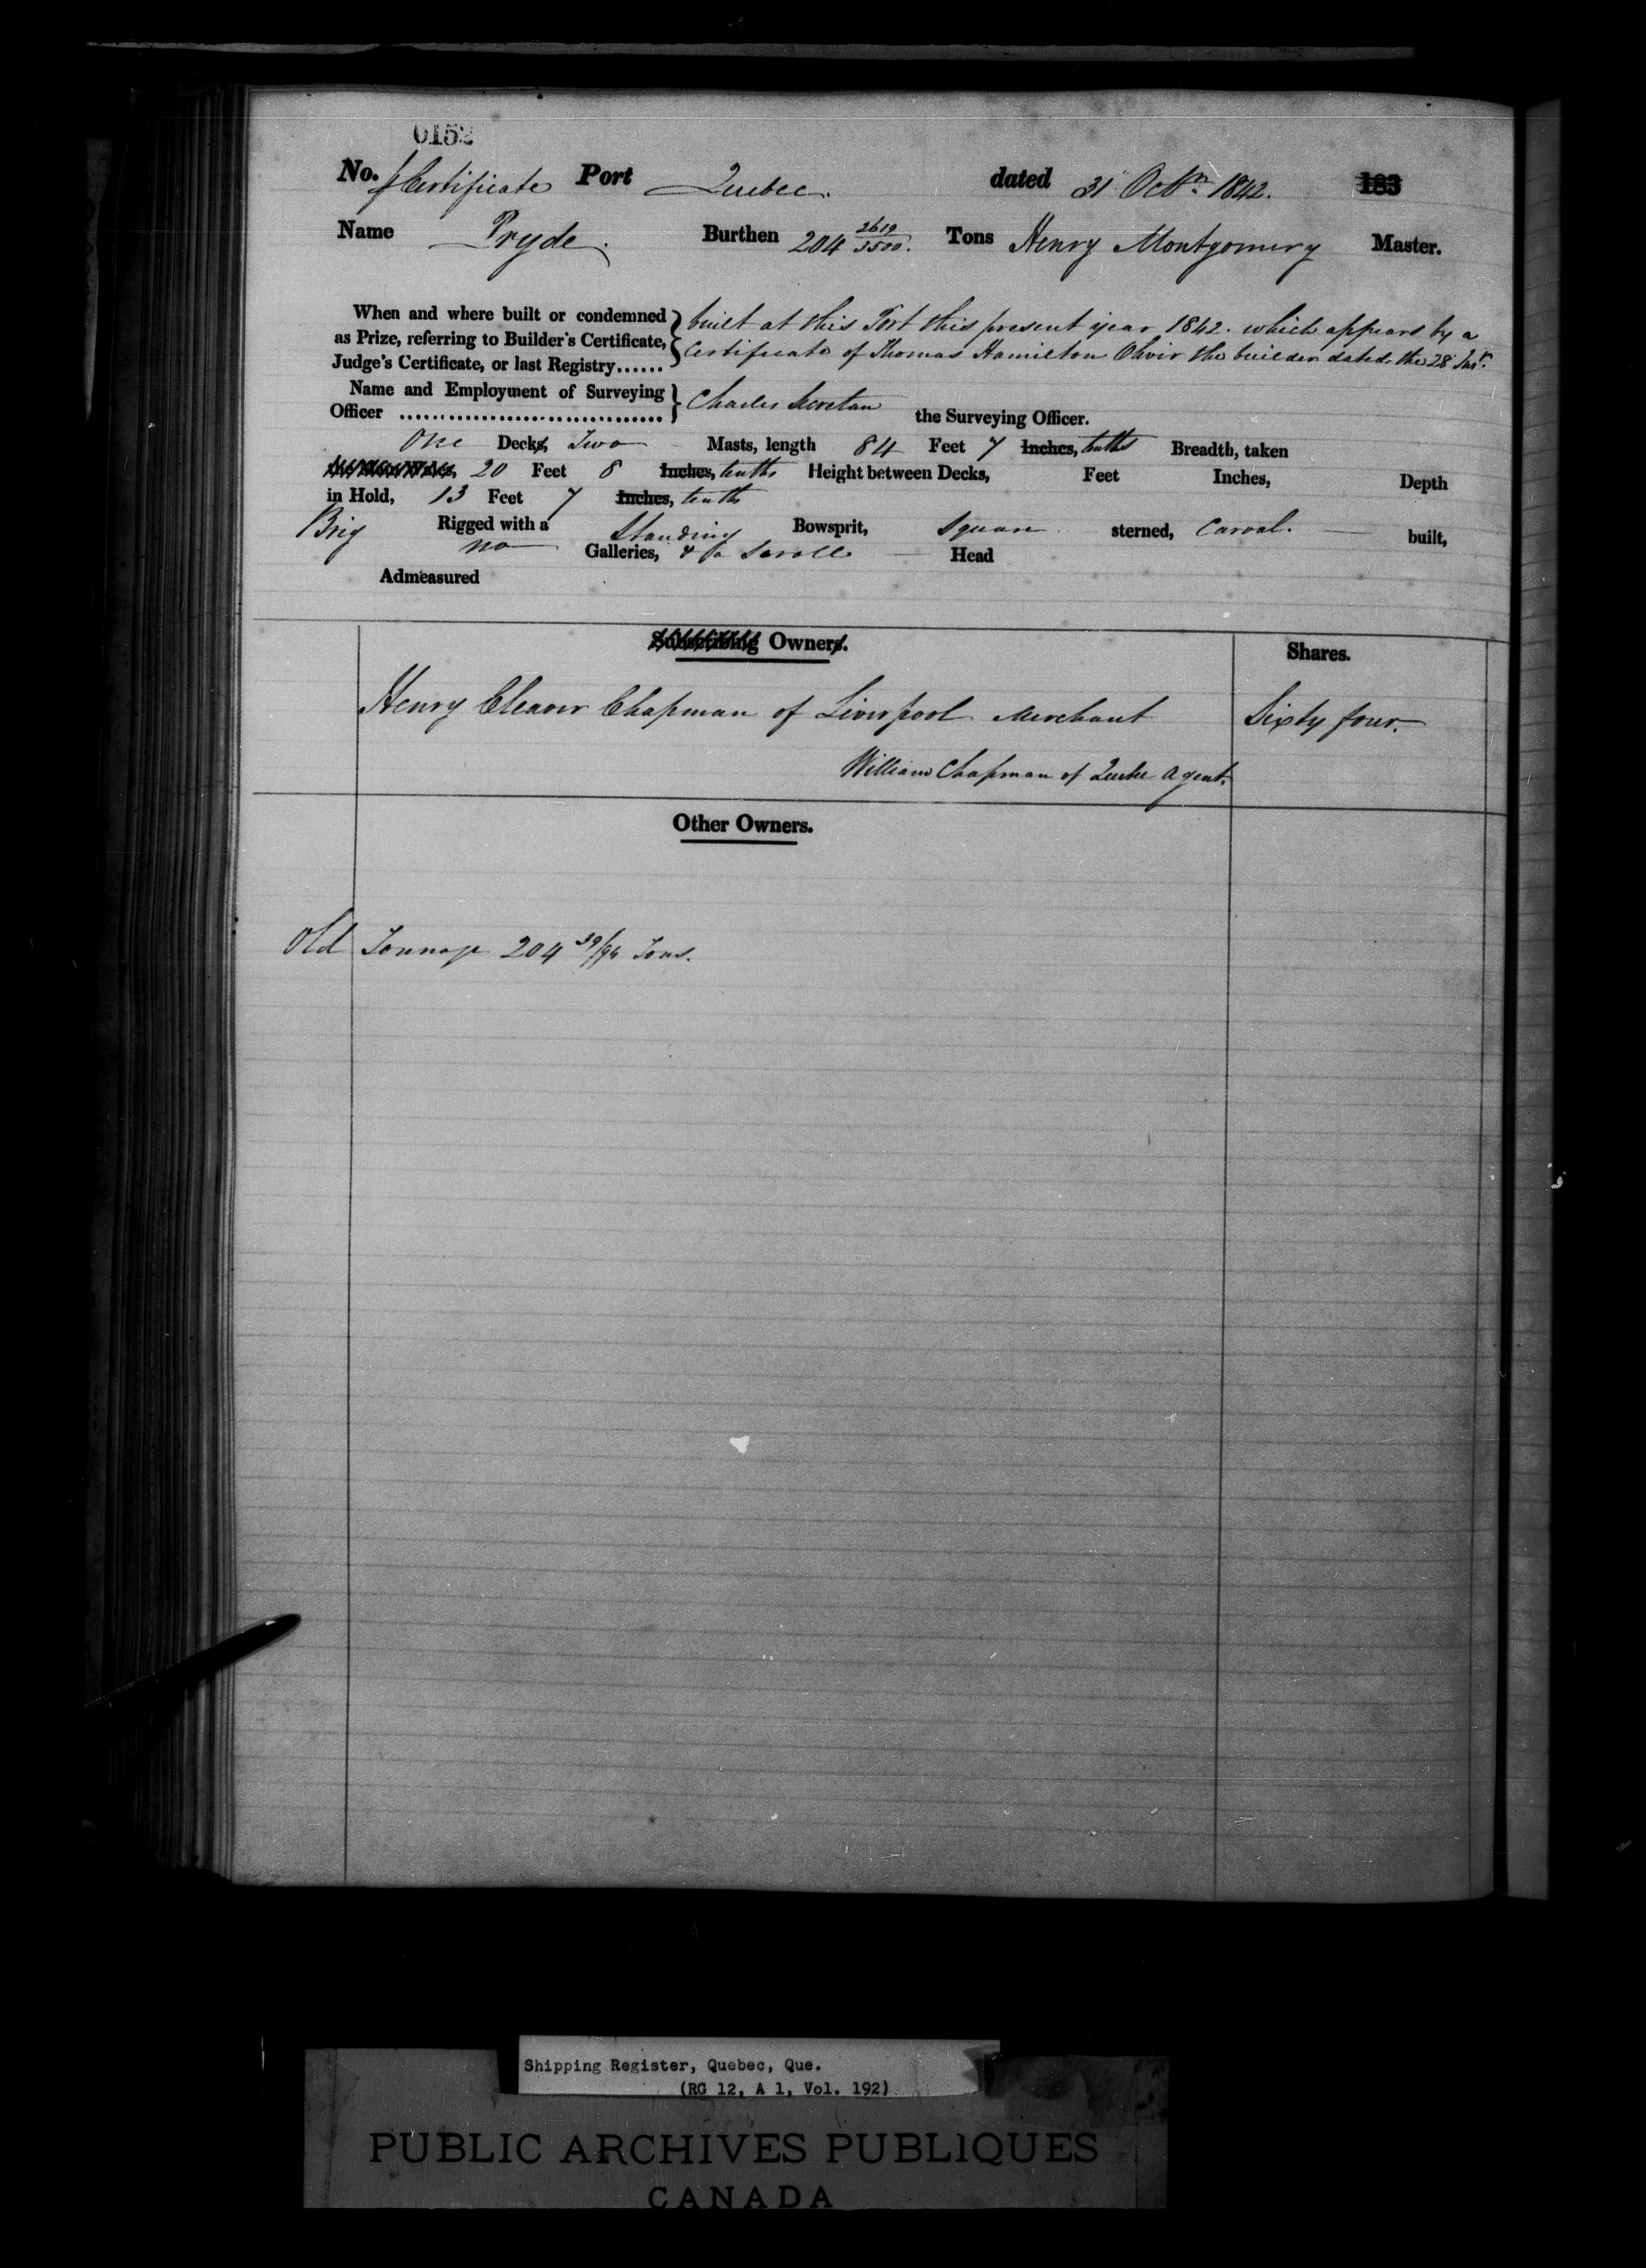 0152
No. Certificate Port Quebec. dated 31 Octr. 1842. 183
Name Pryde. Burthen 204 2610/3500. Tons Henry Montgomery Master.
When and where built or condemned as Prize, referring to Builder's Certificate, Judge's Certificate, or last Registry......
built at this Port this present year 1842. which appears by a
Certificate of Thomas Hamilton Oliver the builder dated the 28 Inst.
Name and Employment of Surveying Officer ..............................
Charles Secretan the Surveying Officer.
One Decks, Two Masts, length 84 Feet 7 Inches, tenths Breadth, taken
20 Feet 8 Inches, tenths Height between Decks, Feet Inches, Depth
in Hold, 13 Feet 7 Inches, tenths
Brig Rigged with a Standing Bowsprit, Square sterned, Carvel built,
no Galleries, & a Scroll Head
Admeasured
Subscribing Owners. Shares.
Henry Cleaver Chapman of Liverpool Merchant Sixty four.
William Chapman of Quebec Agent.
Other Owners.
Old Tonnage 204 39/94 Tons.
Shipping Register, Quebec, Que.
(RG 12, A 1, Vol. 192)
PUBLIC ARCHIVES PUBLIQUES
CANADA